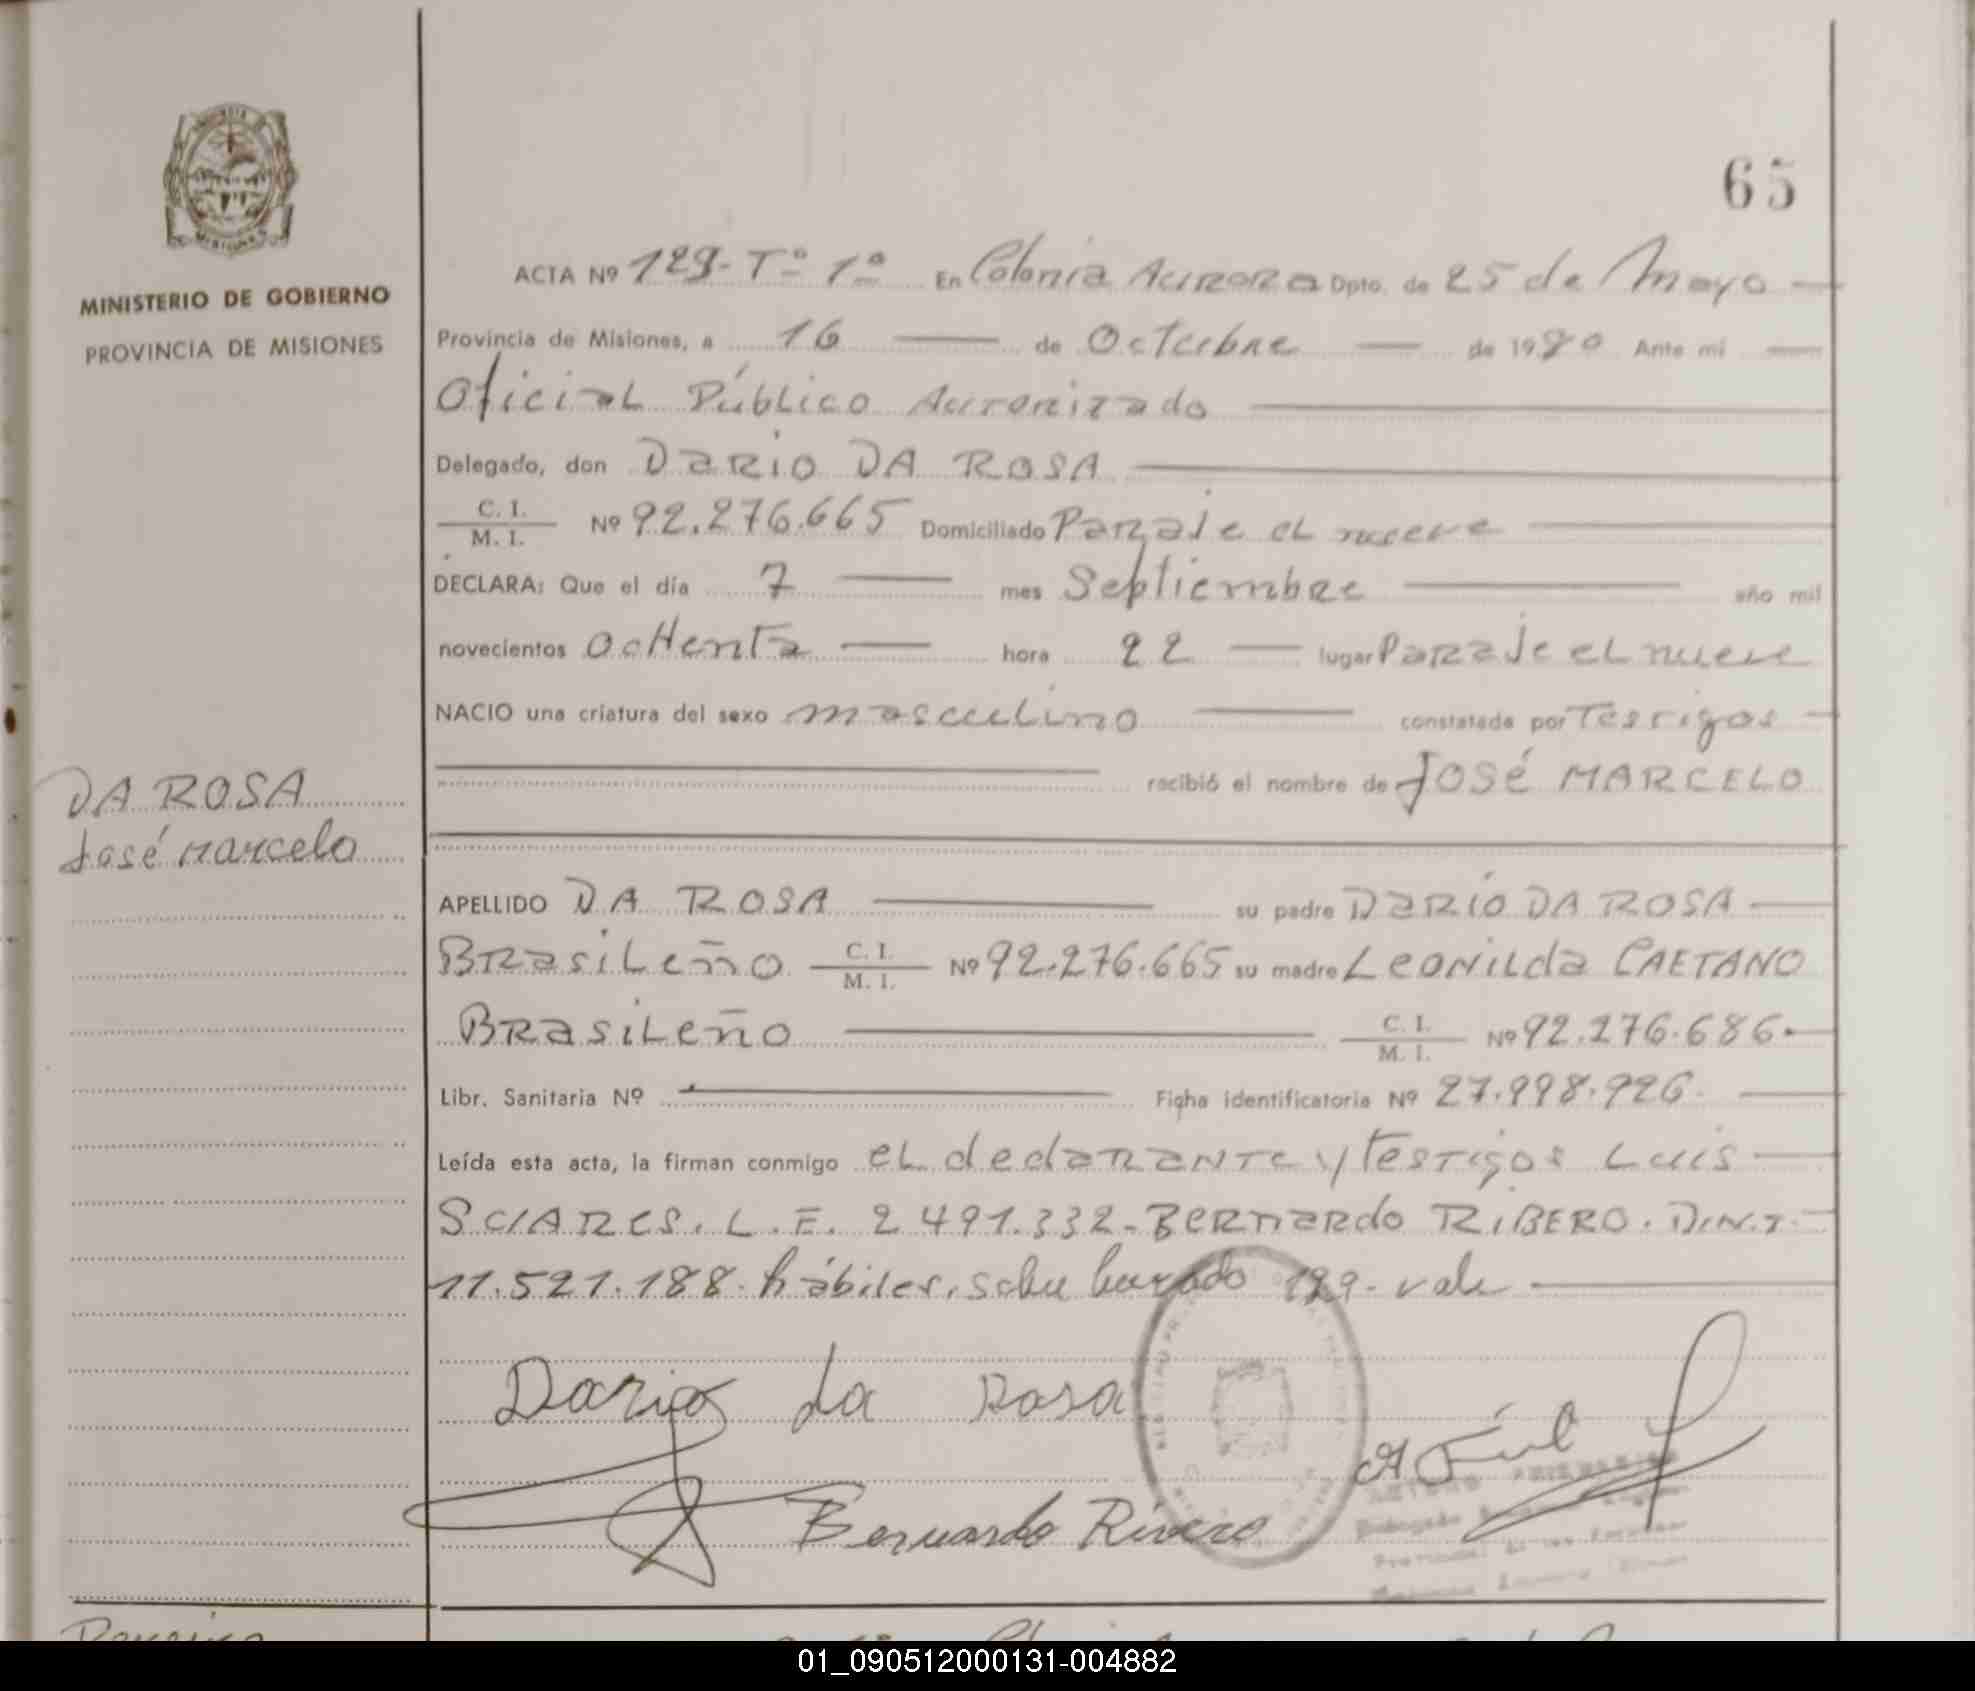 65
MINISTERIO DE GOBIERNO
PROVINCIA DE MISIONES
ACTA Nº 129- Tº 1º En Colonia Aurora Dpto. de 25 de Mayo
Provincia de Misiones, a 16 de Octubre de 1980 Ante mi
Oficial Público Autorizado
Delegado, don Dario DA ROSA
C. I. / M. I. Nº 92.276.665 Domiciliado Paraje el nueve
DECLARA: Que el día 7 mes Septiembre año mil
novecientos ocHenta hora 22 lugar Paraje el nueve
NACIO una criatura del sexo masculino constatada por Testigos
recibió el nombre de JOSÉ MARCELO
DA ROSA
José Marcelo
APELLIDO DA ROSA su padre DARÍO DA ROSA
Brasileño C. I. / M. I. Nº 92.276.665 su madre Leonilda CAETANO
Brasileño C. I. / M. I. Nº 92.276.686.
Libr. Sanitaria Nº Ficha identificatoria Nº 27.998.926.
Leída esta acta, la firman conmigo el declarante y Testigos Luis
SUARES. L.E. 2.491.332- Bernardo RIBERO. D.N.I.
11.521.188. hábiles, sobre borrado 129- vale
Dario da Rosa
Bernardo Rivero
01_090512000131-004882